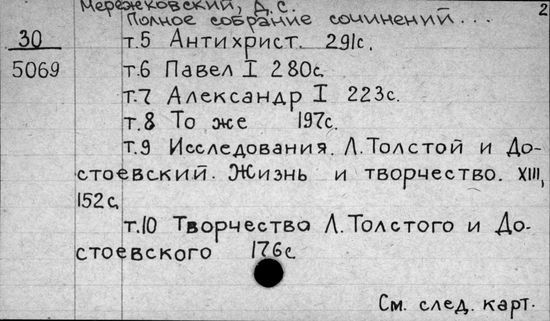 Мережковский, Д.С. 2
Полное собрание сочинений...
30 т.5 Антихрист. 291с.
5069 т.6 Павел I 280с.
т.7 Александр I 223с.
т.8 То же 197с.
т.9 Исследования. Л.Толстой и До-
стоевский. Жизнь и творчество. XIII,
152с.
т.10 Творчество Л.Толстого и До-
стоевского 176с.
См. след. карт.